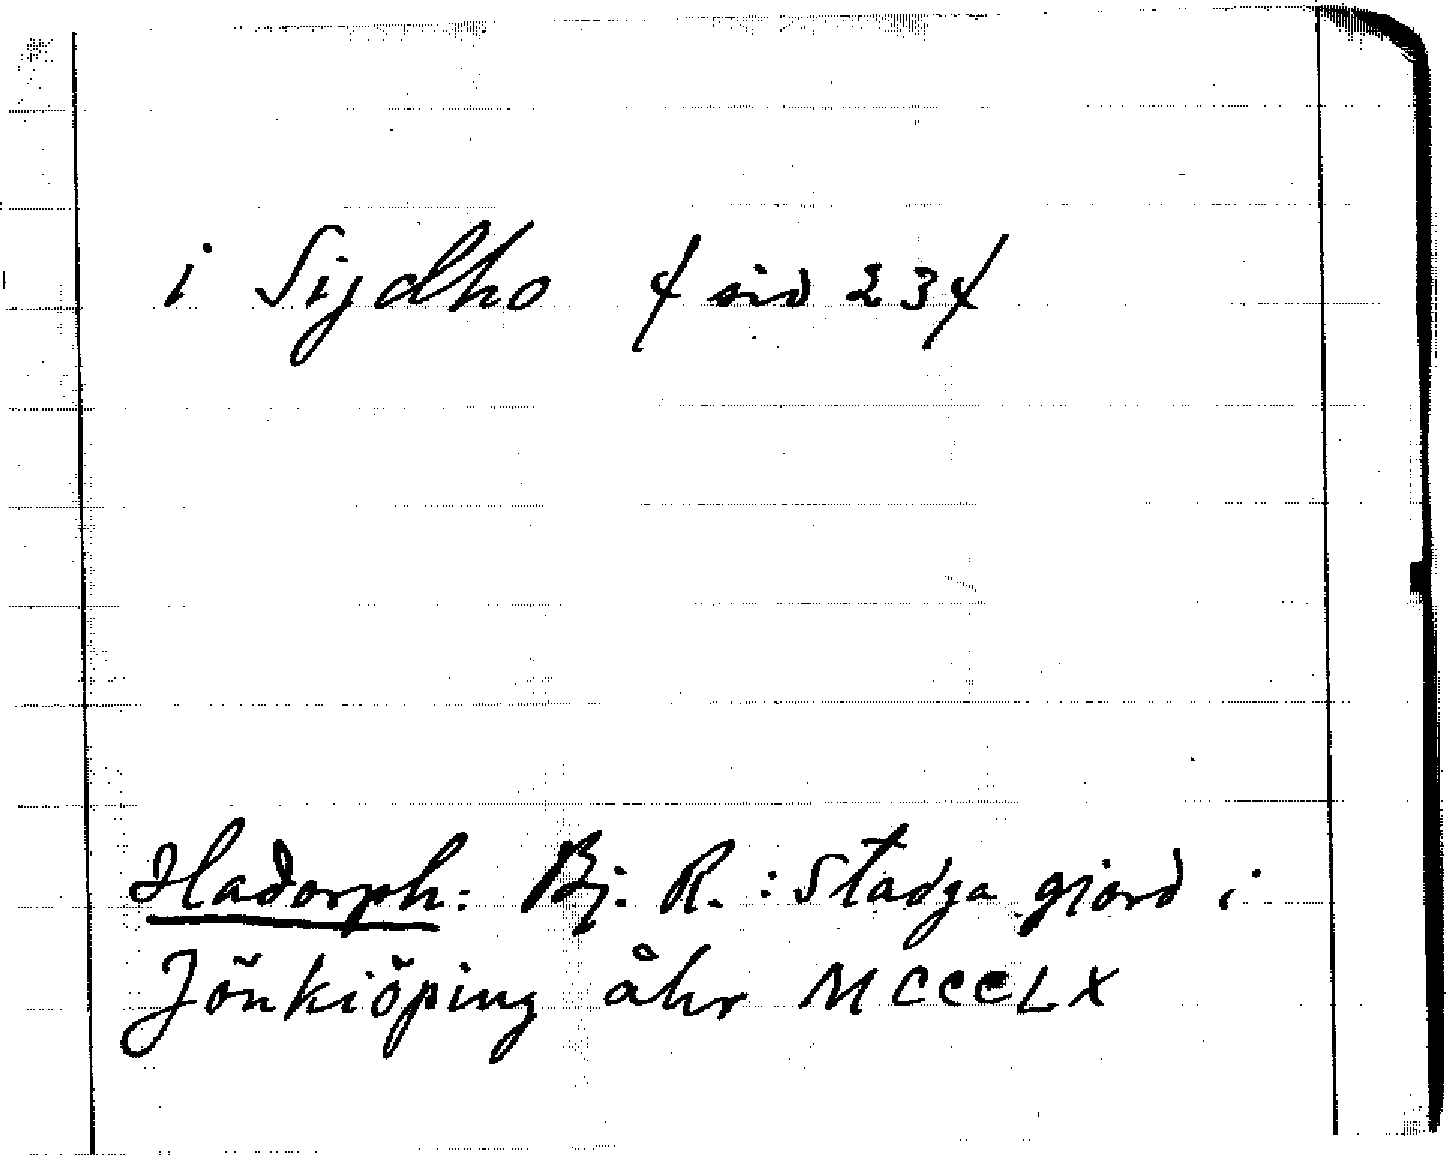 i Sijdho / sid 23 /
Hadorph: Bj. R.: Stadga giord i
Jönkiöping åhr MCCCLX